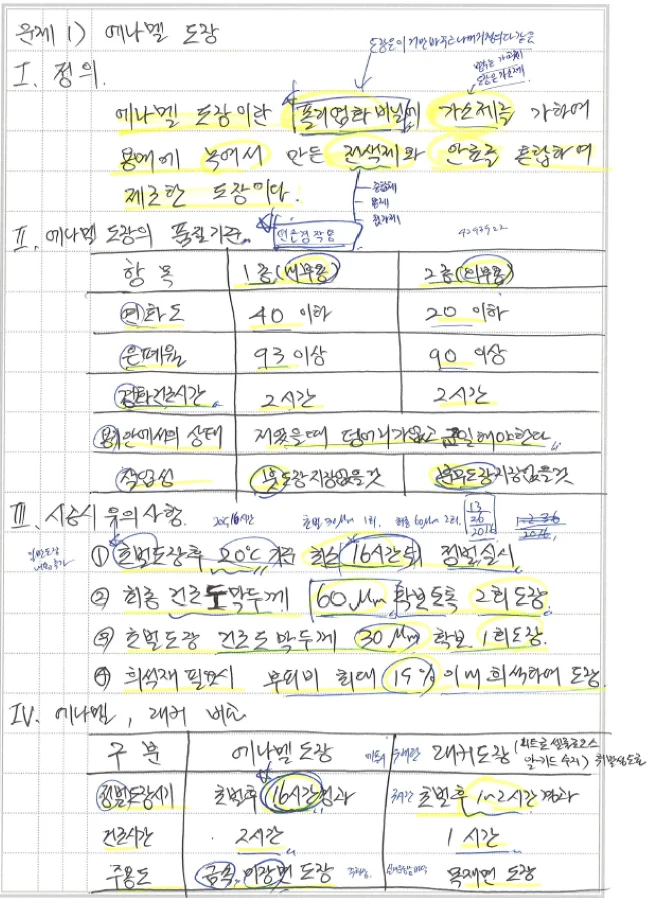 문제 1) 에나멜 도장
I. 정의.
에나멜 도장이란 폴리염화비닐에 가소제를 가하여
용매에 녹여서 만든 전색제와 안료를 혼합하여
제조한 도장이다.
중합체
용제
첨가제
II. 에나멜 도장의 품질기준.
4293922
항 목 1종(내부용) 2종(외부용)
연화도 40 이하 20 이하
은폐율 93 이상 90 이상
경화건조시간 2시간 2시간
용기안에서의 상태 저었을때 덩어리가없고 균일해야한다
작업성 붓도장지장없을것 도장지장없을것
III. 시공시 유의사항.
20℃, 16시간 초벌 30μm 1회. 60μm 2회. 13 26 2016
① 초벌도장후 20℃ 기준 최소 16시간후 정벌실시
② 최종 건조도막두께 60μm 확보토록 2회 도장
③ 초벌도장 건조도막두께 30μm 확보 1회도장.
④ 희석재 필요시 부피비 최대 15% 이내 희석하여 도장.
IV. 에나멜, 래커 비교
구 분 에나멜 도장 래커도장
정벌도장시기 초벌후 16시간경과 초벌후 1~2시간 경과
건조시간 2시간 1 시간
주용도 금속, 미장면 도장 목재면 도장